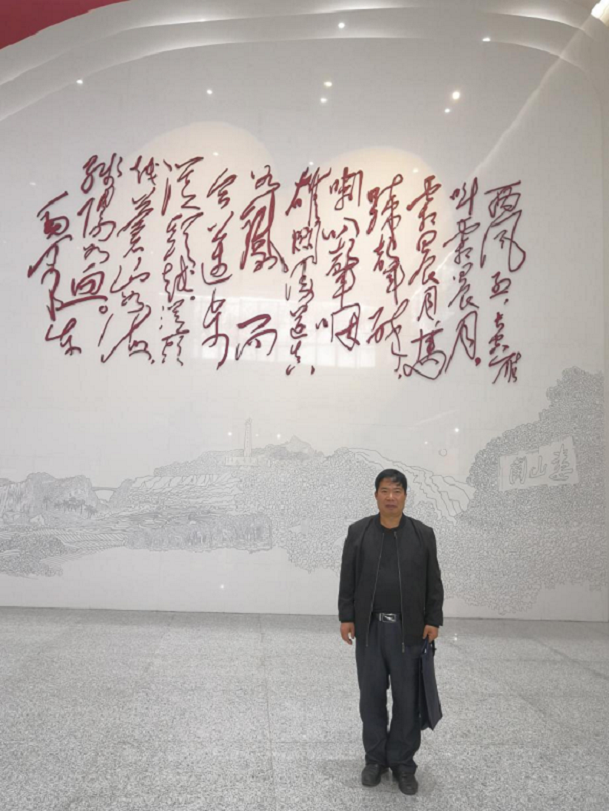 西风烈,长空雁
叫霜晨月。
霜晨月,馬
蹄声碎,
喇叭声咽
雄関漫道真
如鐵 而
今迈步
從頭越 從頭
越 蒼山如海,
殘陽如血。
毛泽东
娄山关